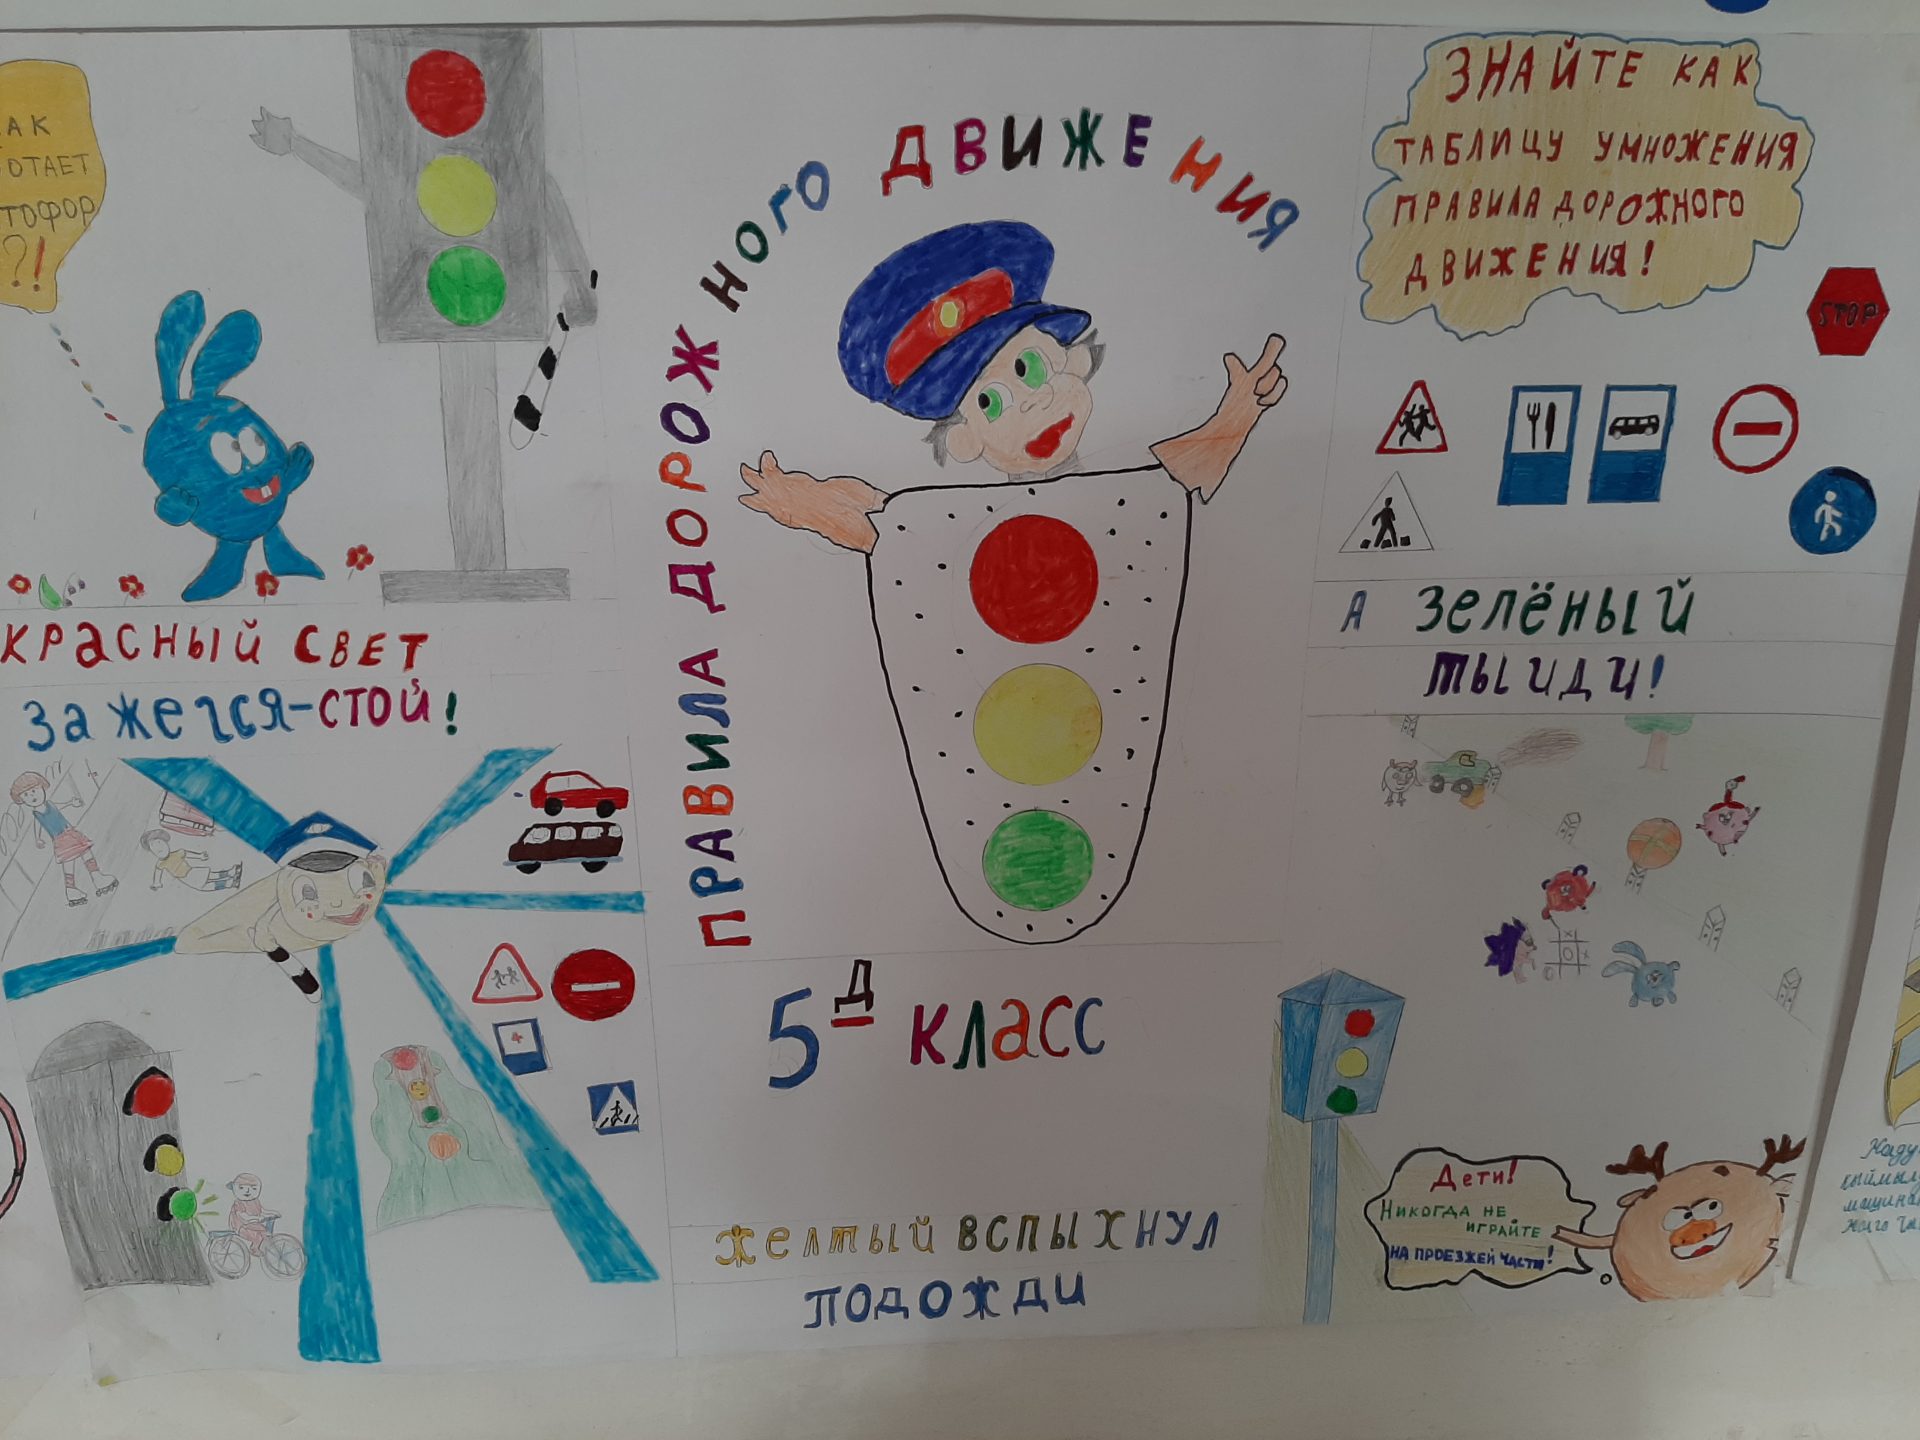 АК
ОТАЕТ
ТОФОР
?!
КРАСНЫЙ СВЕТ
ЗАЖЕГСЯ-СТОЙ!
ПРАВИЛА ДОРОЖНОГО ДВИЖЕНИЯ
5Д КЛАСС
ЖЕЛТЫЙ ВСПЫХНУЛ
ПОДОЖДИ
ЗНАЙТЕ КАК
ТАБЛИЦУ УМНОЖЕНИЯ
ПРАВИЛА ДОРОЖНОГО
ДВИЖЕНИЯ!
STOP
А ЗЕЛЁНЫЙ
ТЫ ИДИ!
Дети!
Никогда не
играйте
на проезжей части!